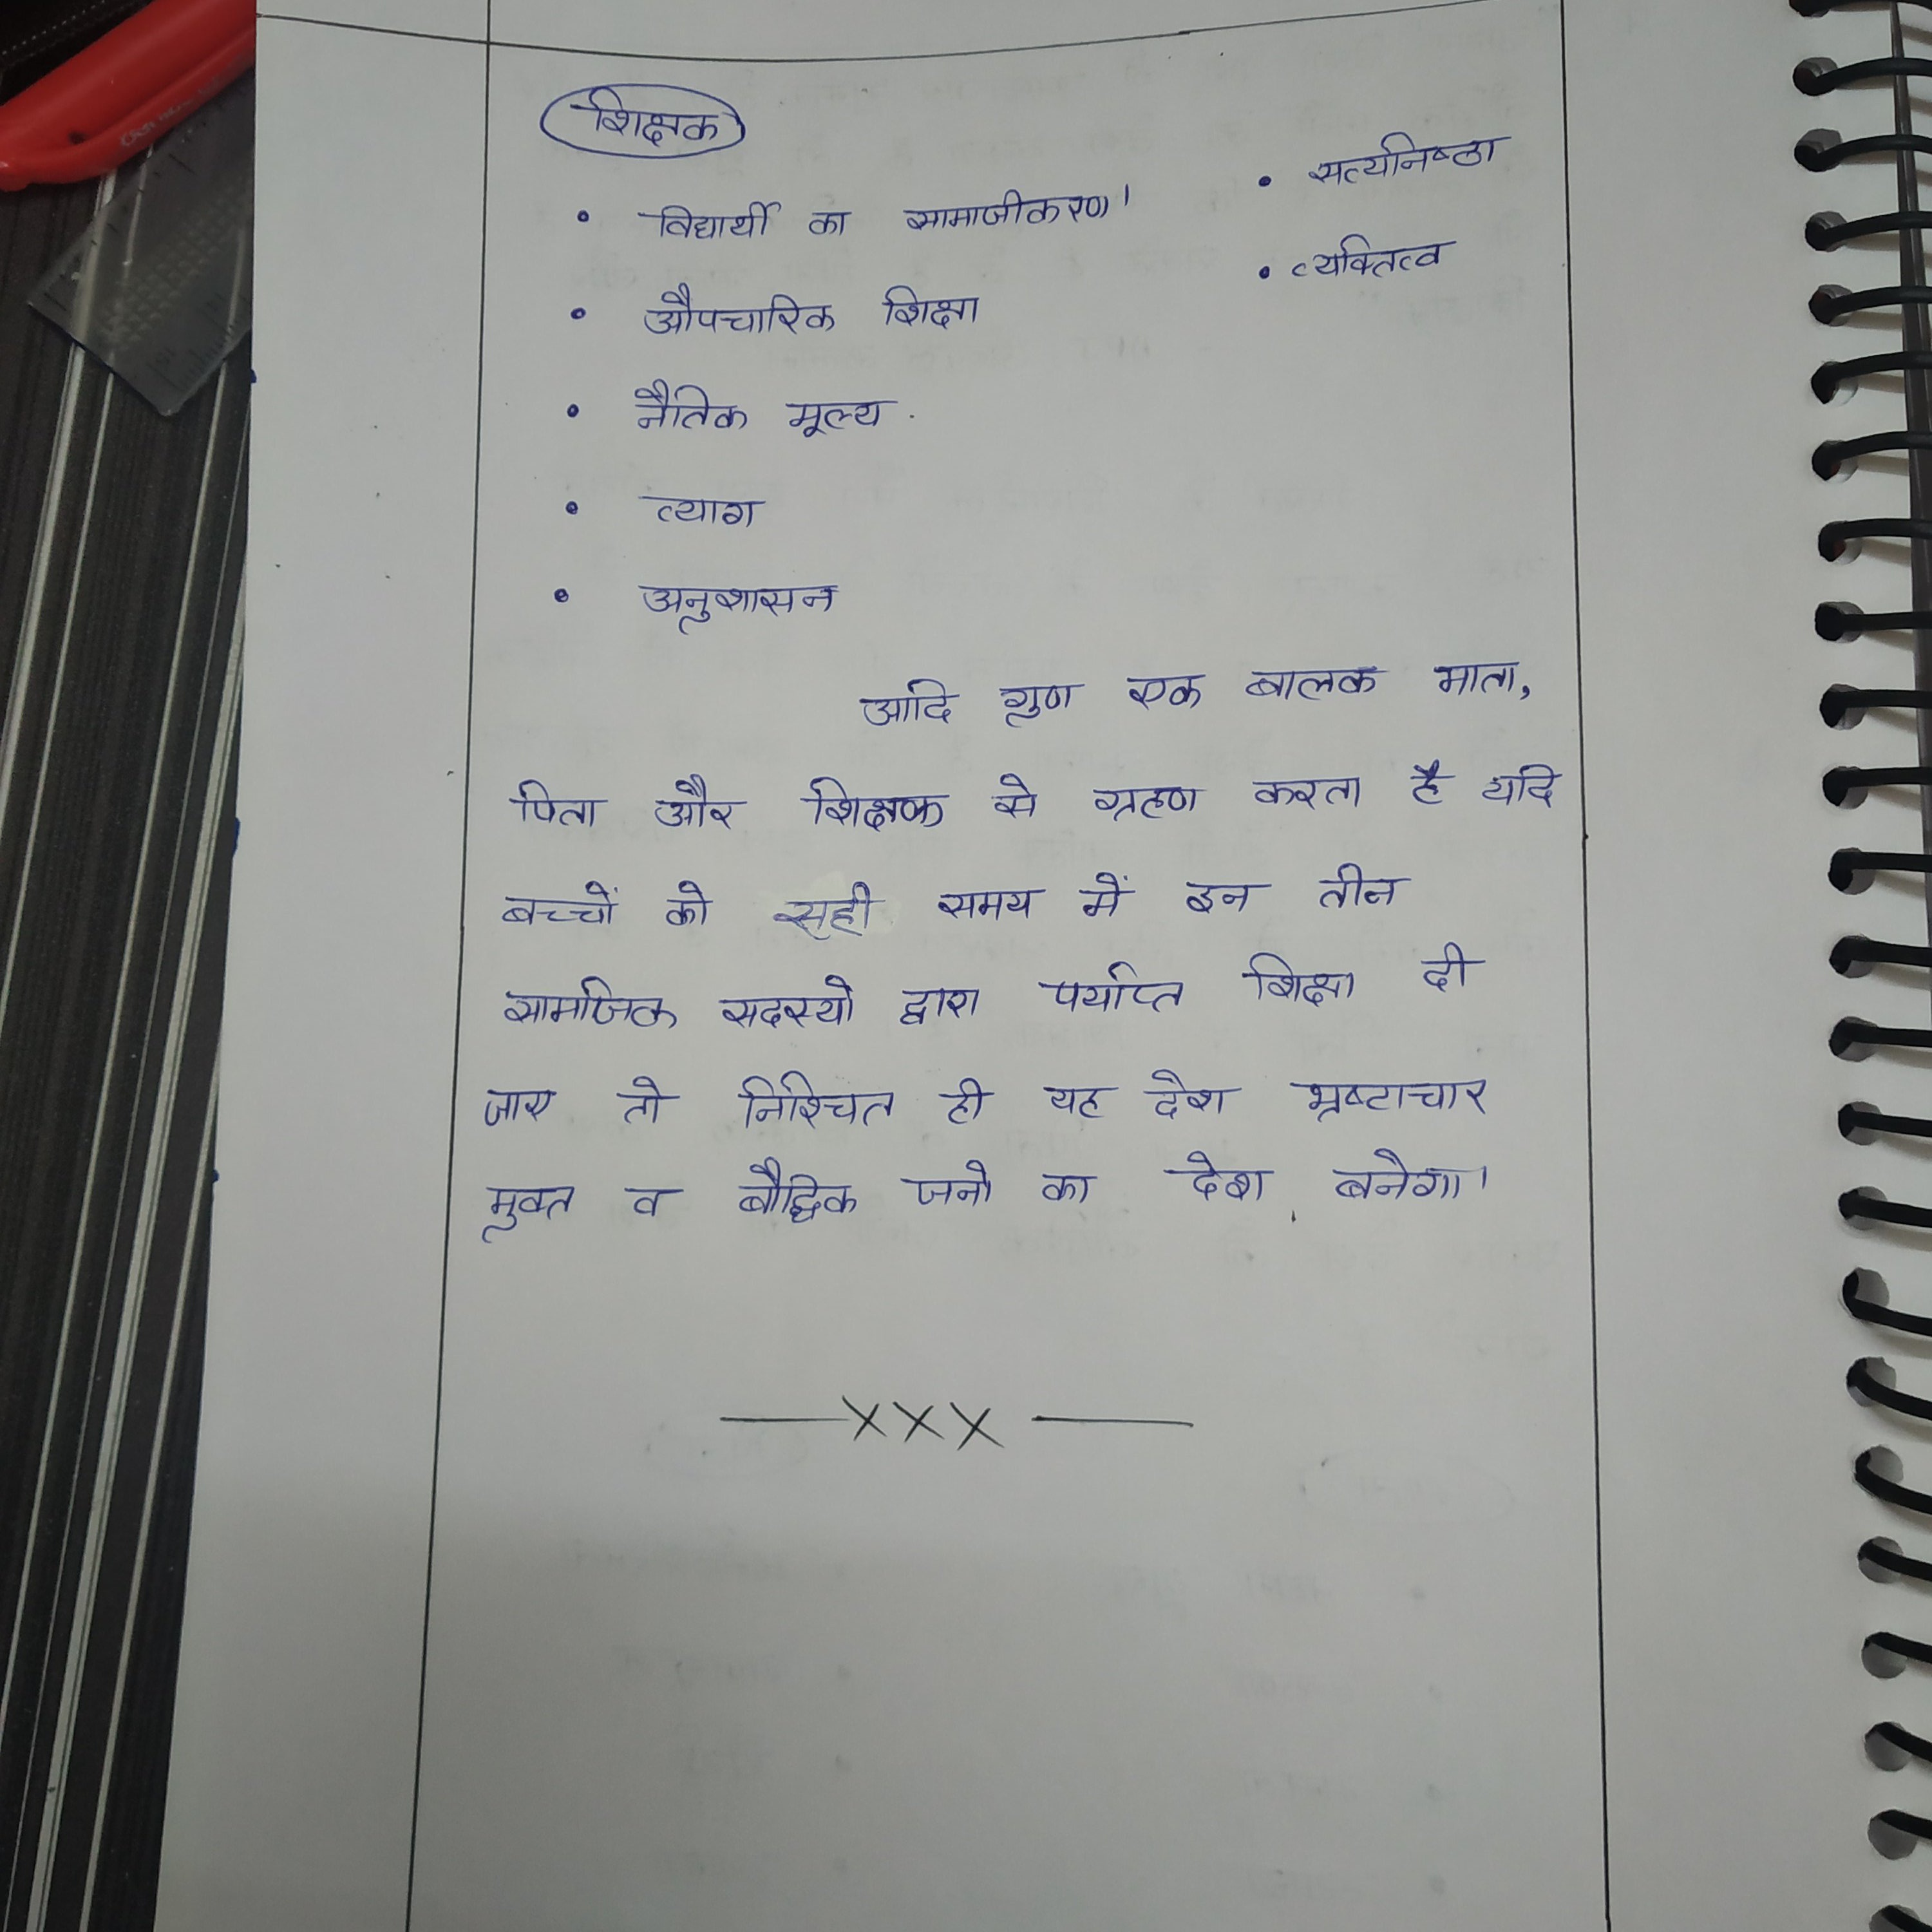 शिक्षक
• विद्यार्थी का सामाजीकरण।
• औपचारिक शिक्षा
• नैतिक मूल्य.
• त्याग
• अनुशासन
• सत्यनिष्ठा
• व्यक्तित्व
आदि गुण एक बालक माता,
पिता और शिक्षक से ग्रहण करता है यदि
बच्चों को सही समय में इन तीन
सामाजिक सदस्यो द्वारा पर्याप्त शिक्षा दी
जाए तो निश्चित ही यह देश भ्रष्टाचार
मुक्त व बौद्धिक जनो का देश बनेगा।
—xxx—